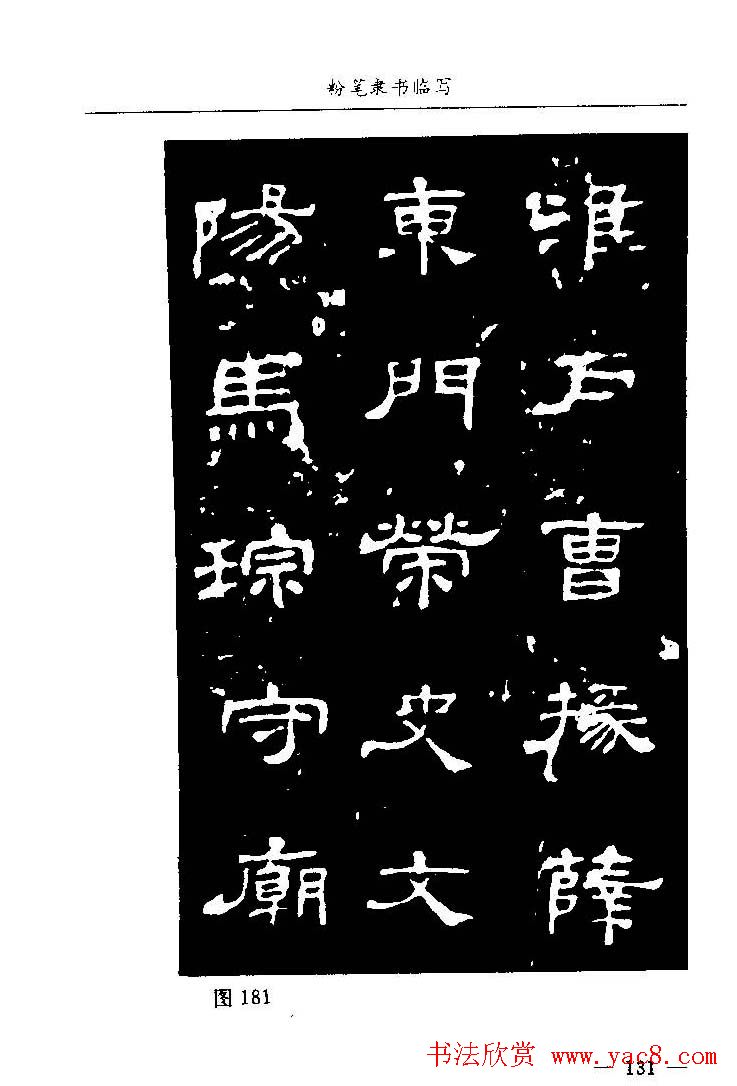 粉笔隶书临写
淮戶曹掾薛
東門榮史文
陽馬琮守廟
图 181
书法欣赏 www.yac8.com
— 131 —